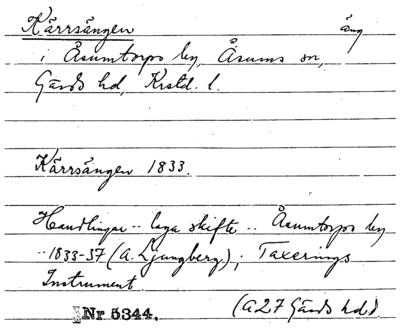 Kärrsängen äng
i Åsumtorps by, Åsums sn,
Gärds hd, Krstd. l.
Kärrsängen 1833.
Handlingar .. laga skifte .. Åsumtorps by
.. 1833-37 (A. Ljungberg); Taxerings
Instrument
Nr 5344. (A27 Gärds hd.)